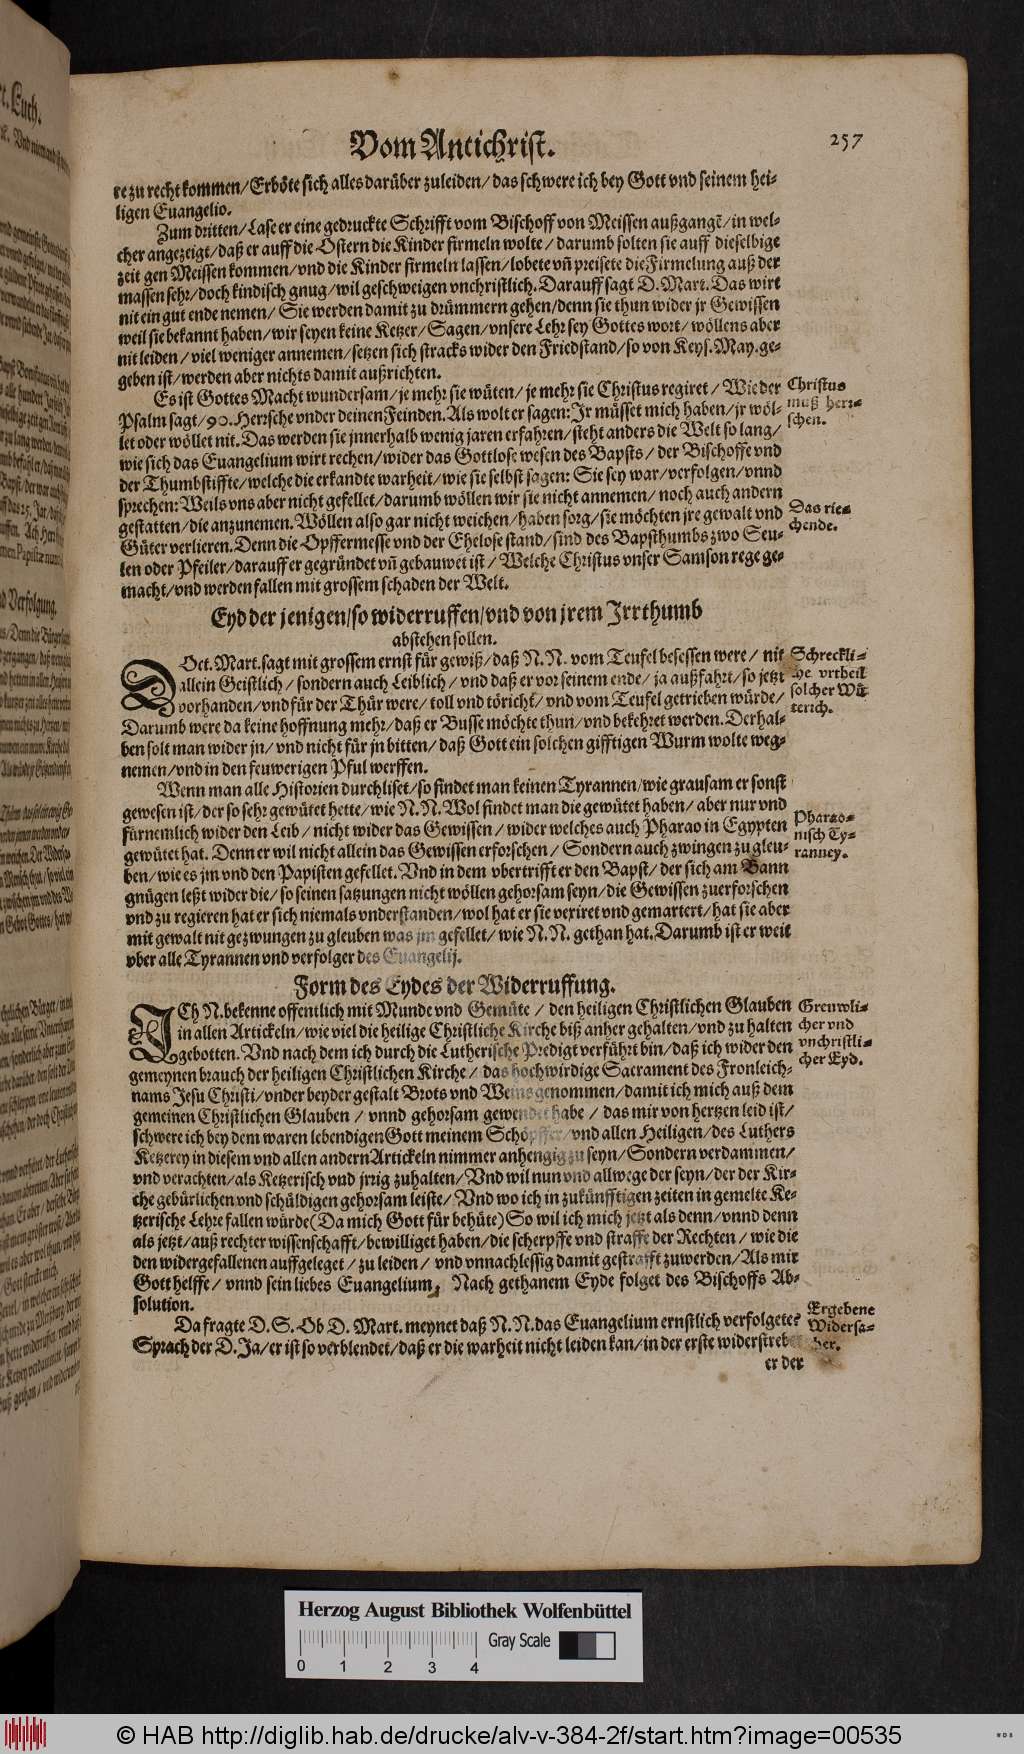 Vom Antichrist.
257
re zu recht kommen/ Erböte sich alles darüber zuleiden/ das schwere ich bey Gott vnd seinem hei-
ligen Euangelio.
Zum dritten/ Lase er eine gedruckte Schrifft vom Bischoff von Meissen außgangē/ in wel-
cher angezeigt/ daß er auff die Ostern die Kinder firmeln wolte/ darumb solten sie auff dieselbige
zeit gen Meissen kommen/ vnd die Kinder firmeln lassen/ lobete vñ preisete die Firmelung auß der
massen sehr/ doch kindisch gnug/ wil geschweigen vnchristlich. Darauff sagt D. Mart. Das wirt
nit ein gut ende nemen/ Sie werden damit zu drümmern gehen/ denn sie thun wider jr Gewissen
weil sie bekannt haben/ wir seyen keine Ketzer/ Sagen/ vnsere Lehr sey Gottes wort/ wöllens aber
nit leiden/ viel weniger annemen/ setzen sich stracks wider den Friedstand/ so von Keys. May. ge-
geben ist/ werden aber nichts damit außrichten.
Es ist Gottes Macht wundersam/ je mehr sie wüten/ je mehr sie Christus regiret/ Wie der
Psalm sagt/ 90. Herrsche vnder deinen Feinden. Als wolt er sagen: Jr müsset mich haben/ jr wöl-
let oder wöllet nit. Das werden sie jnnerhalb wenig jaren erfahren/ steht anders die Welt so lang/
wie sich das Euangelium wirt rechen/ wider das Gottlose wesen des Bapsts/ der Bischoffe vnd
der Thumbstiffte/ welche die erkandte warheit/ wie sie selbst sagen: Sie sey war/ verfolgen/ vnnd
sprechen: Weils vns aber nicht gefellet/ darumb wöllen wir sie nicht annemen/ noch auch andern
gestatten/ die anzunemen. Wöllen also gar nicht weichen/ haben sorg/ sie möchten jre gewalt vnd
Güter verlieren. Denn die Opffermesse vnd der Ehelose stand/ sind des Bapsthumbs zwo Seu-
len oder Pfeiler/ darauff er gegründet vñ gebauwet ist/ Welche Christus vnser Samson rege ge-
macht/ vnd werden fallen mit grossem schaden der Welt.
Christus
muß herr-
schen.
Das rie-
chende.
Eyd der jenigen/ so widerruffen/ vnd von jrem Irrthumb
abstehen sollen.
Doct. Mart. sagt mit grossem ernst für gewiß/ daß N. N. vom Teufel besessen were/ nit
allein Geistlich/ sondern auch Leiblich/ vnd daß er vor seinem ende/ ja außfahrt/ so jetzt
vorhanden/ vnd für der Thür were/ toll vnd töricht/ vnd vom Teufel getrieben würde/
Darumb were da keine hoffnung mehr/ daß er Busse möchte thun/ vnd bekehret werden. Derhal-
ben solt man wider jn/ vnd nicht für jn bitten/ daß Gott ein solchen gifftigen Wurm wolte weg-
nemen/ vnd in den feuwerigen Pful werffen.
Schreckli-
che vrtheil
solcher Wü
terich.
Wenn man alle Historien durchliset/ so findet man keinen Tyrannen/ wie grausam er sonst
gewesen ist/ der so sehr gewütet hette/ wie N. N. Wol findet man die gewütet haben/ aber nur vnd
fürnemlich wider den Leib/ nicht wider das Gewissen/ wider welches auch Pharao in Egypten
gewütet hat. Denn er wil nicht allein das Gewissen erforschen/ Sondern auch zwingen zu gleu-
ben/ wie es jm vnd den Papisten gefellet. Vnd in dem vbertrifft er den Bapst/ der sich am Bann
gnügen leßt wider die/ so seinen satzungen nicht wöllen gehorsam seyn/ die Gewissen zuerforschen
vnd zu regieren hat er sich niemals vnderstanden/ wol hat er sie vexiret vnd gemartert/ hat sie aber
mit gewalt nit gezwungen zu gleuben was jm gefellet/ wie N. N. gethan hat. Darumb ist er weit
vber alle Tyrannen vnd verfolger des Euangelij.
Pharao-
nisch Ty-
ranney.
Form des Eydes der Widerruffung.
ICh N. bekenne offentlich mit Munde vnd Gemüte/ den heiligen Christlichen Glauben
in allen Artickeln/ wie viel die heilige Christliche Kirche biß anher gehalten/ vnd zu halten
gebotten. Vnd nach dem ich durch die Lutherische Predigt verführt bin/ daß ich wider den
gemeynen brauch der heiligen Christlichen Kirche/ das hochwirdige Sacrament des Fronleich-
nams Jesu Christi/ vnder beyder gestalt Brots vnd Weins genommen/ damit ich mich auß dem
gemeinen Christlichen Glauben/ vnnd gehorsam gewendet habe/ das mir von hertzen leid ist/
schwere ich bey dem waren lebendigen Gott meinem Schöpffer/ vnd allen Heiligen/ des Luthers
Ketzerey in diesem vnd allen andern Artickeln nimmer anhengig zu seyn/ Sondern verdammen/
vnd verachten/ als Ketzerisch vnd jrrig zuhalten/ Vnd wil nun vnd allwege der seyn/ der der Kir-
che gebürlichen vnd schüldigen gehorsam leiste/ Vnd wo ich in zukünfftigen zeiten in gemelte Ke-
tzerische Lehre fallen würde (Da mich Gott für behüte) So wil ich mich jetzt als denn/ vnnd denn
als jetzt/ auß rechter wissenschafft/ bewilliget haben/ die scherpffe vnd straffe der Rechten/ wie die
den widergefallenen auffgeleget/ zu leiden/ vnd vnnachlessig damit gestrafft zuwerden/ Als mir
Gott helffe/ vnnd sein liebes Euangelium, Nach gethanem Eyde folget des Bischoffs Ab-
solution.
Greuwli-
cher vnd
vnchristli-
cher Eyd.
Da fragte D. S. Ob D. Mart. meynet daß N. N. das Euangelium ernstlich verfolgete?
Sprach der D. Ja/ er ist so verblendet/ daß er die warheit nicht leiden kan/ in der erste widerstrebet
er der
Ergebene
Widersa-
cher.
Herzog August Bibliothek Wolfenbüttel
Gray Scale
0 1 2 3 4
© HAB http://diglib.hab.de/drucke/alv-v-384-2f/start.htm?image=00535